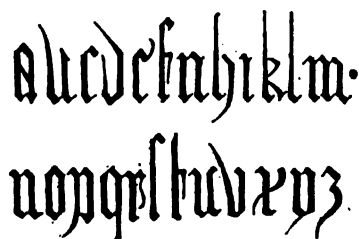 abcdefghiklm.
nopqrſtuvxyz.